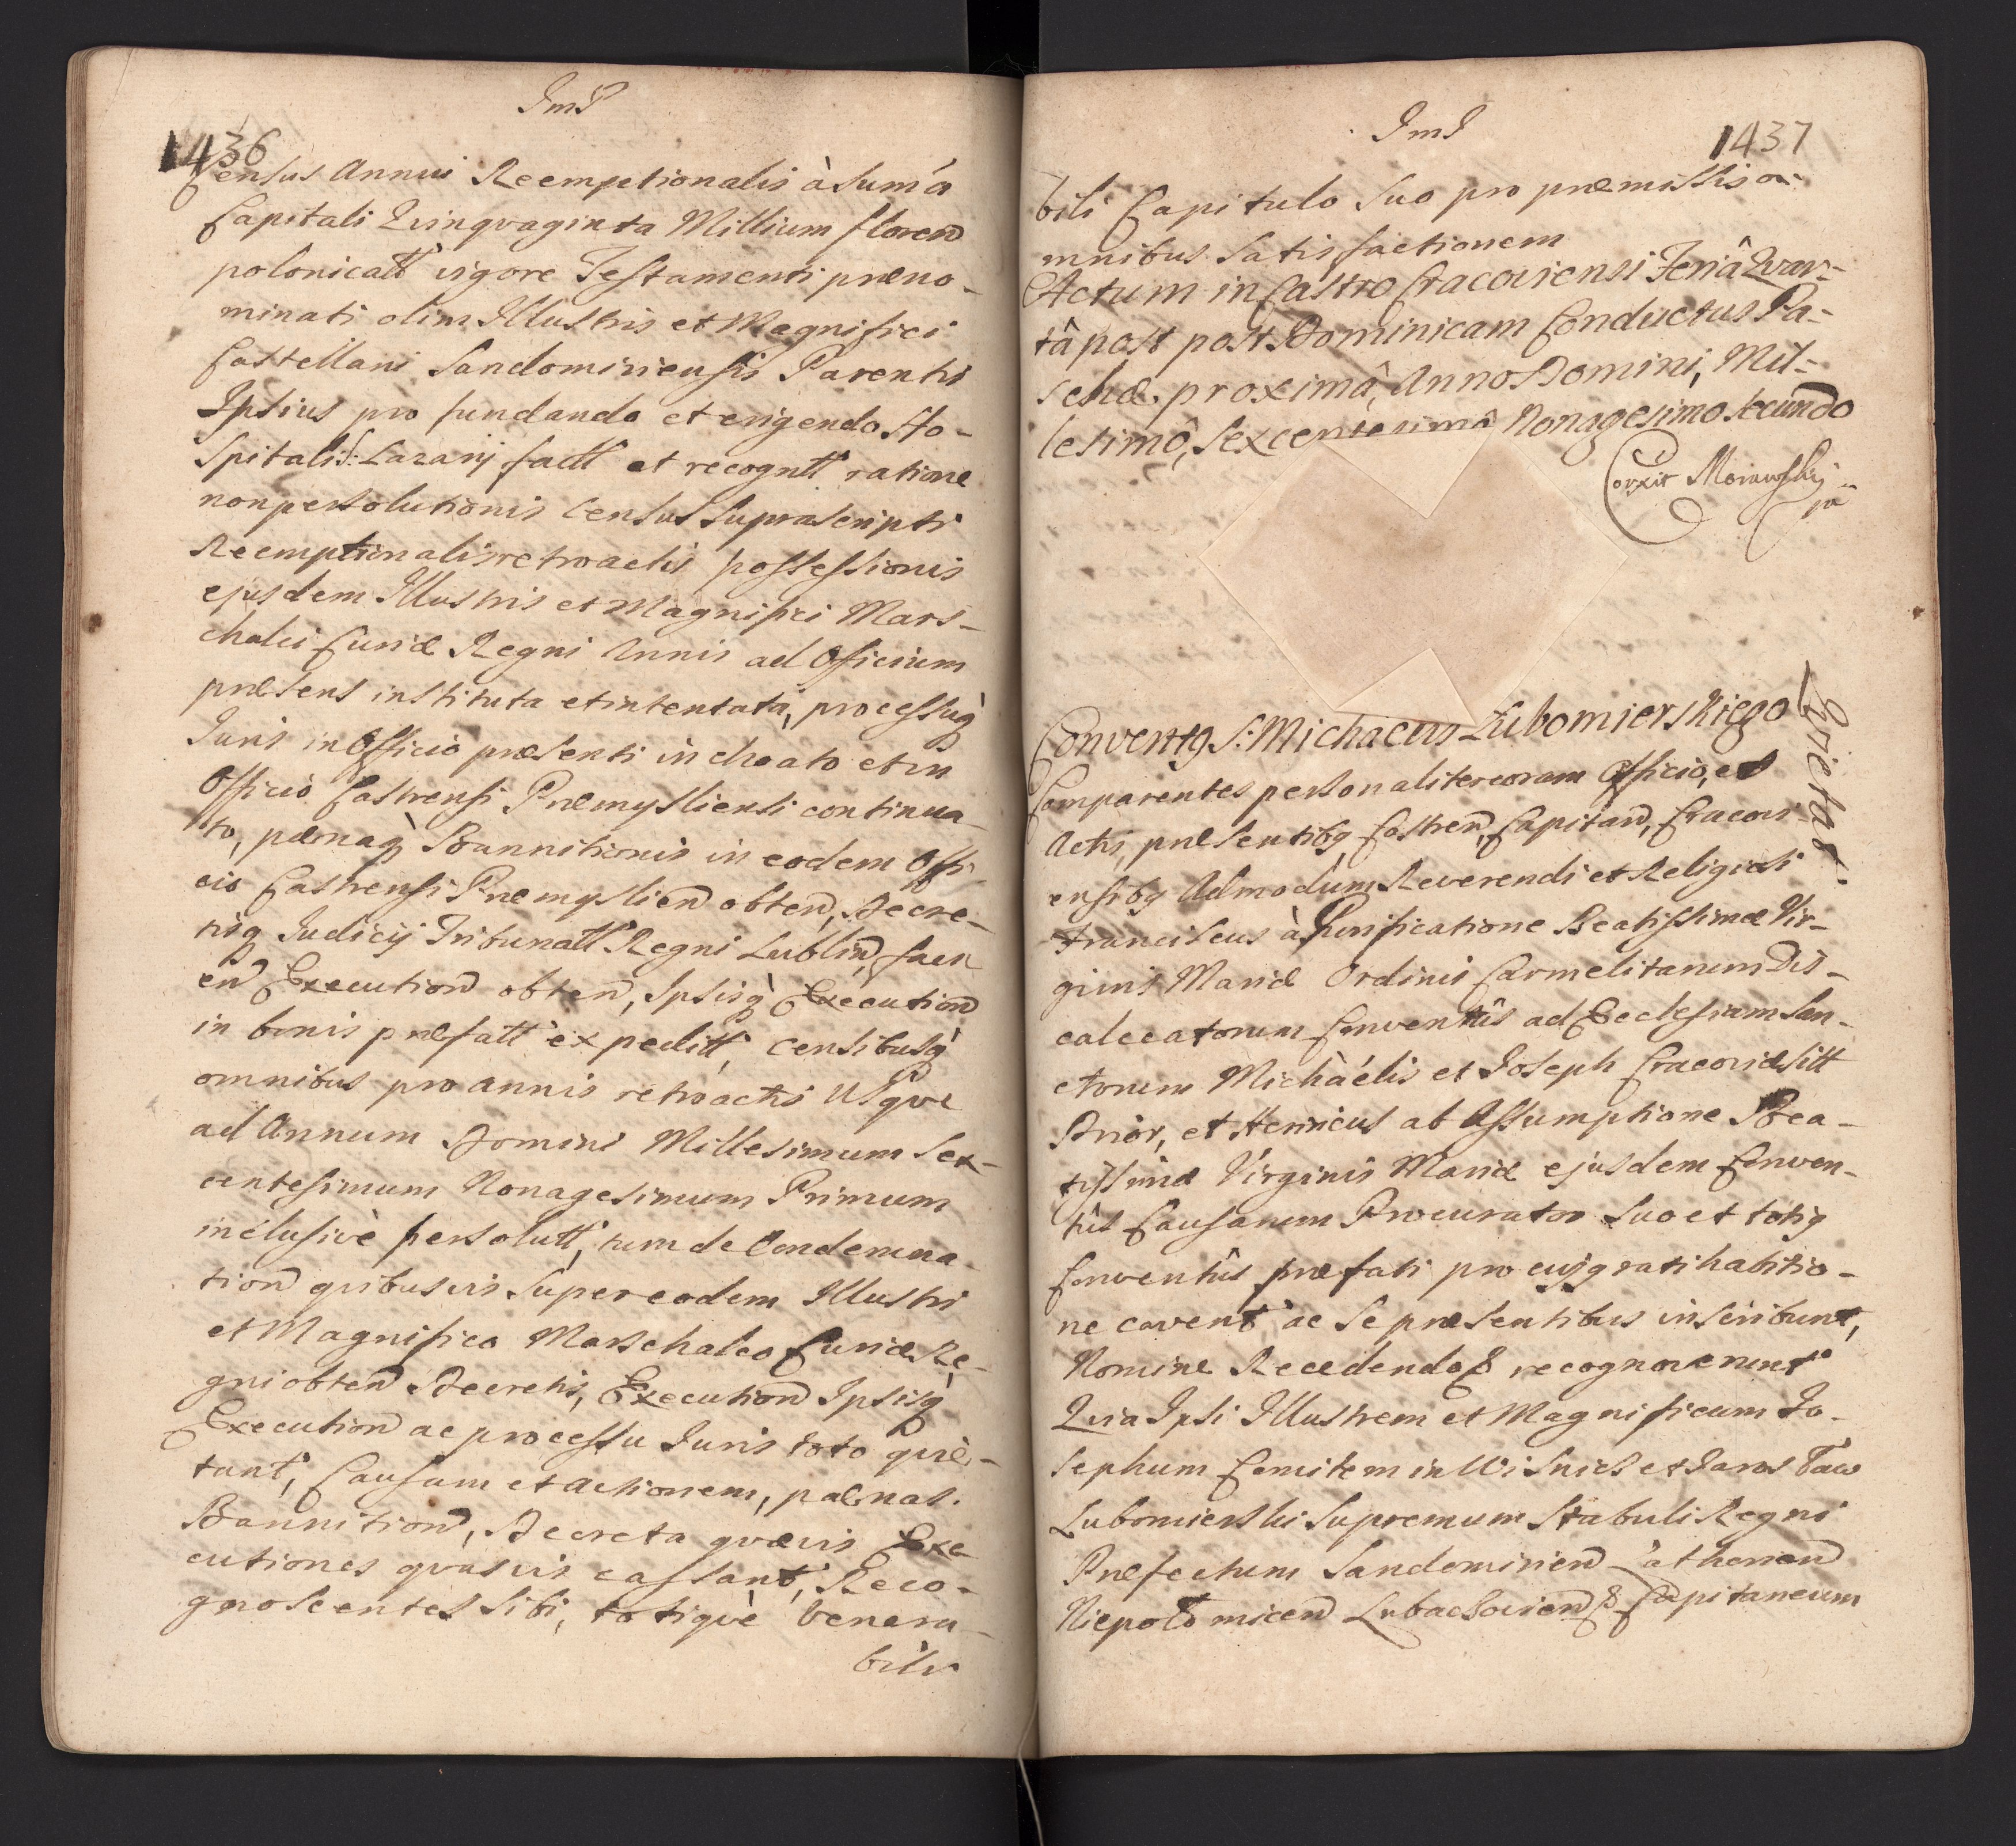 JmJ
1436
Census Annui Reemptionalis à Sum̄a
Capitali Qvinqvaginta Millium floreñ
polonicatt vigore Testamenti præno-
minati olim Illustris et Magnifici
Castellani Sandomiriensis Parentis
Ipsius pro fundando et erigendo Ho-
Spitali S: Lazarij fact et recognitt ratione
non persolutionis Census Suprascripti
Reemptionalis retroactis possessionis
ejusdem Illustris et Magnifici Mars-
chalci Curiæ Regni Annis ad Officium
præsens instituta et intentata, processuq̀
Juris in Officio præsenti inchoato et in
Officio Castrensi Præmysliensi continua-
to, pænaq̀ Bannitionis in eodem Offi-
cio Castrensi Præmyslieñ obteñ, Decre-
tisq Judicij Tribunatt Regni Lubliñ, faci-
eñ Executioñ obteñ, Ipsisq̀ Executioñ
in bonis præfatt expeditt, censibusq̀
omnibus pro annis retroactis Usqve
ad Annum Domini Millesimum Sex-
centesimum Nonagesimum Primum
inclusivè persolutt, tum de Condemna-
tioñ qvibusvis Super eodem Illustri
et Magnifico Marschalco Curiæ Re-
gni obteñ Decretis, Executioñ Ipsisq̀
Executioñ ac processu Juris toto qviè-
tant, Causam et Actionem, pænas.
Bannitioñ, Decreta qvævis Exe-
cutiones qvasvis cassant, Reco-
gnoscentes Sibi, totiqvè Venera-
bili
JmJ
1437
bili Capitulo Suo pro præmissis o-
mnibus Satisfactionem
Actum in Castro Cracoviensi Feriâ Qvar-
tâ post post Dominicam Conductus Pa-
schæ proximâ, Anno Domini, Mil-
lesimô, Sexcentesimô Nonagesimo Secundo
Corxit Morawskij
Conventq S: Michaelis Lubomierskiego
Qvietat.
Comparentes personaliter coram Officio, et
Actis, præsentibq Castreñ, Capitañ, Cracovi-
ensibq Admodum Reverendi et Religiosi
Franciscus à Purificatione Beatissimæ Vir-
ginis Mariæ Ordinis Carmelitarum Dis-
calceatorum Conventûs ad Ecclesiam San-
ctorum Michàélis et Joseph Cracoviæ Sitt
Prior, et Henricus ab Assumptione Bea-
tissimæ Virginis Mariæ ejusdem Conven-
tûs Causarum Procurator Suo et totiq
Conventûs præfati pro cujq ratihabitio-
ne cavent ac Se præsentibus inscribunt,
Nomine Recedendo & recognoverunt
Qvia Ipsi Illustrem et Magnificum Jo-
sephum Comitem in Wisnicz et Jarosław
Lubomierski Supremum Stabuli Regni
Præfectum Sandomirieñ Zathorieñ
Niepołomiceñ Lubaczovieñ & Capitaneum